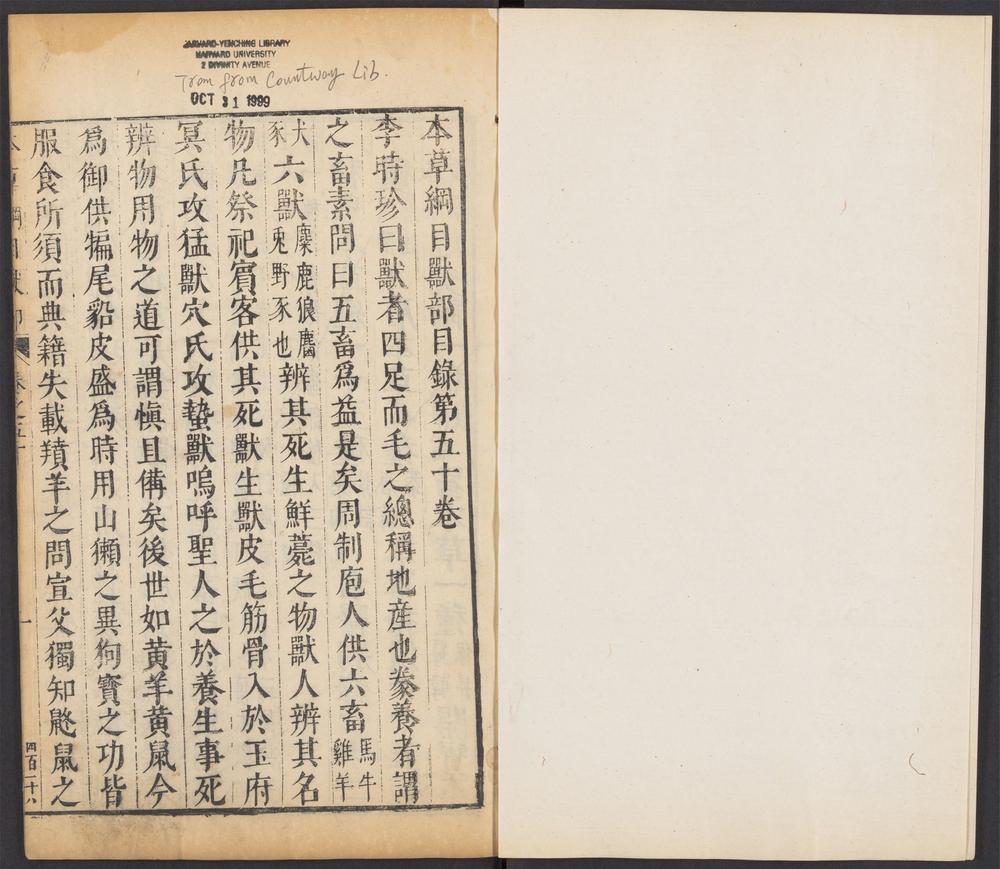 HARVARD-YENCHING LIBRARY
HARVARD UNIVERSITY
2 DIVINITY AVENUE
Tran from Countway Lib.
OCT 31 1999
本草綱目獸部目錄第五十卷
李時珍曰獸者四足而毛之總稱地産也豢養者謂
之畜素問曰五畜爲益是矣周制庖人供六畜馬牛雞羊
犬豕六獸麋鹿狼麕兎野豕也辨其死生鮮薧之物獸人辨其名
物凡祭祀賓客供其死獸生獸皮毛筋骨入於玉府
冥氏攻猛獸穴氏攻蟄獸嗚呼聖人之於養生事死
辨物用物之道可謂愼且備矣後世如黃羊黃鼠今
爲御供犏尾貂皮盛爲時用山獺之異狗寶之功皆
服食所須而典籍失載羵羊之問宣父獨知鼮鼠之
本草綱目獸部
卷之五十
一
四百二十八